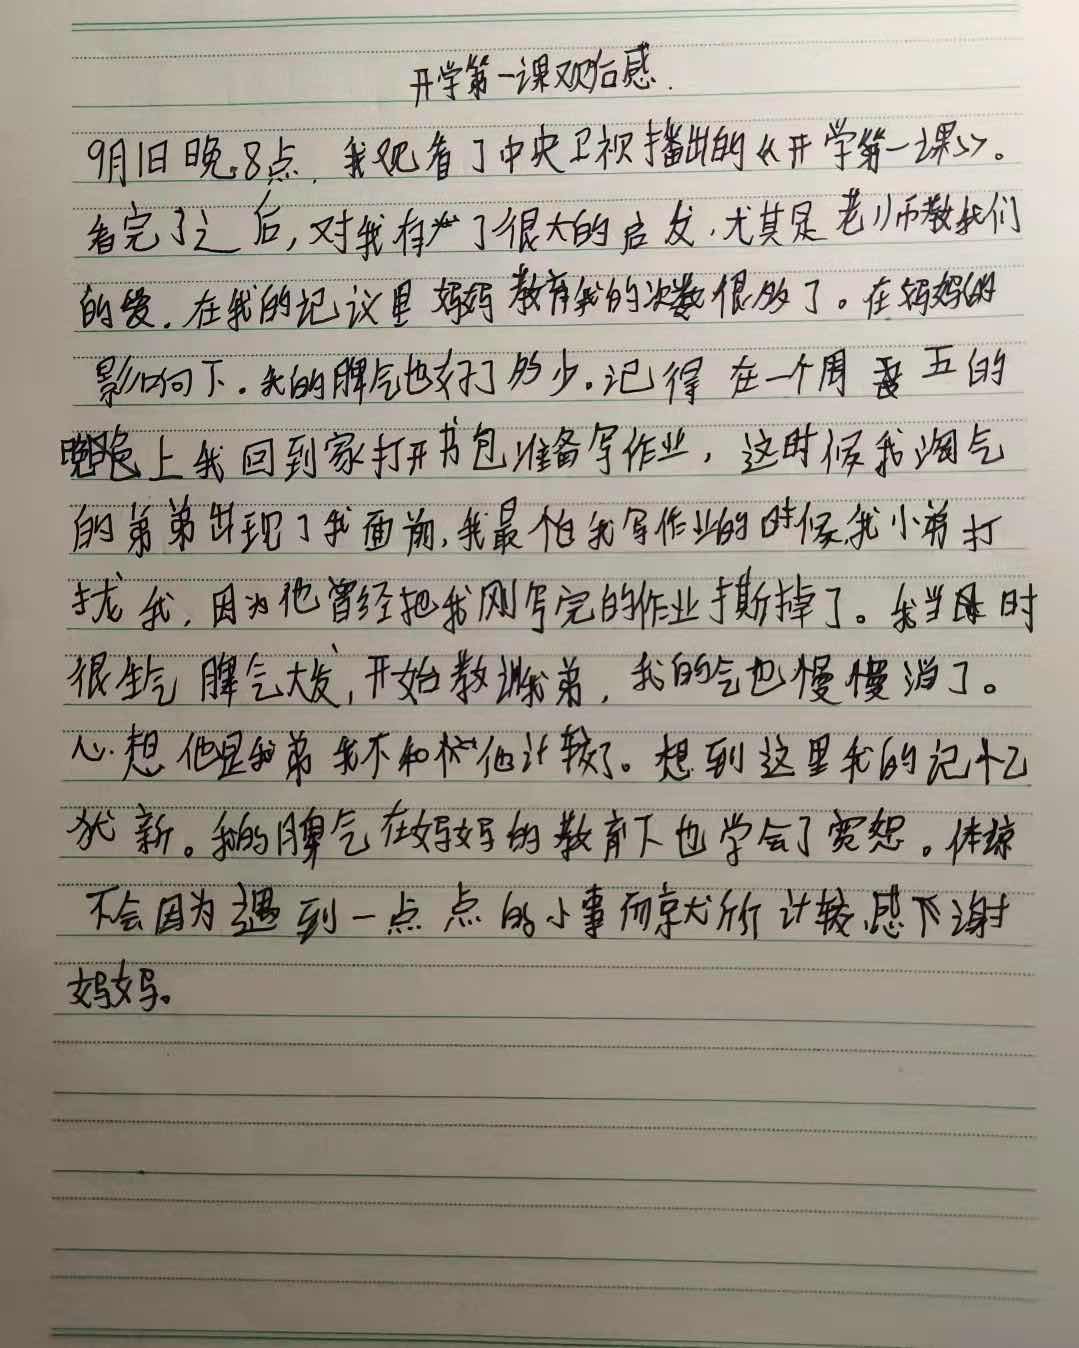 开学第一课观后感.
9月1日晚8点，我观看了中央卫视播出的《开学第一课》。
看完了之后，对我有了很大的启发，尤其是老师教我们
的爱，在我的记议里妈妈教育我的次数很多了。在妈妈的
影响下。我的脾气也好了多少。记得在一个周五的
晚上我回到家打开书包准备写作业，这时候我淘气
的弟弟出现了我面前，我最怕我写作业的时候，我小弟打
扰我，因为他曾经把我刚写完的作业撕掉了。我当时
很生气脾气大发，开始教训我弟，我的气也慢慢消了。
心想他是我弟我不和他计较了。想到这里我的记忆
犹新。我的脾气在妈妈的教育下也学会了宽恕。体谅
不会因为遇到一点点的小事而计较，感下谢
妈妈。